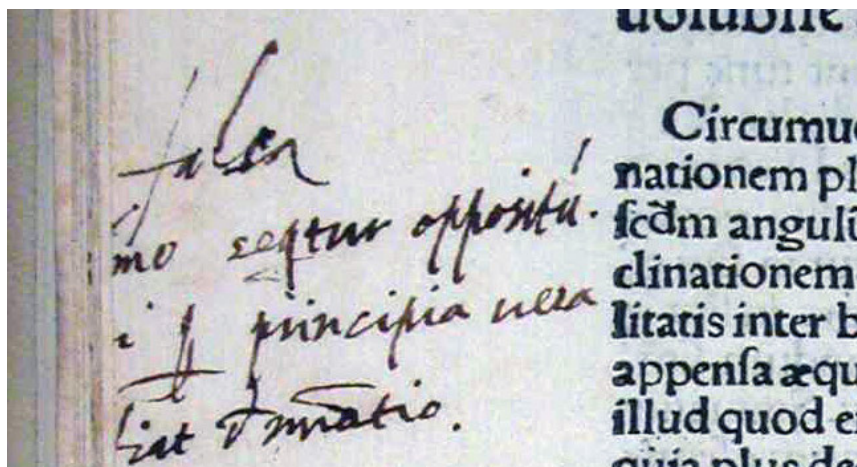 falsa
mo seqtur oppositū.
principia uera
fiat
uolubile
Circumuo
nationem pl
ſcdm angulū
clinationem
litatis inter b
appenſa æqu
illud quod e
quia plus de